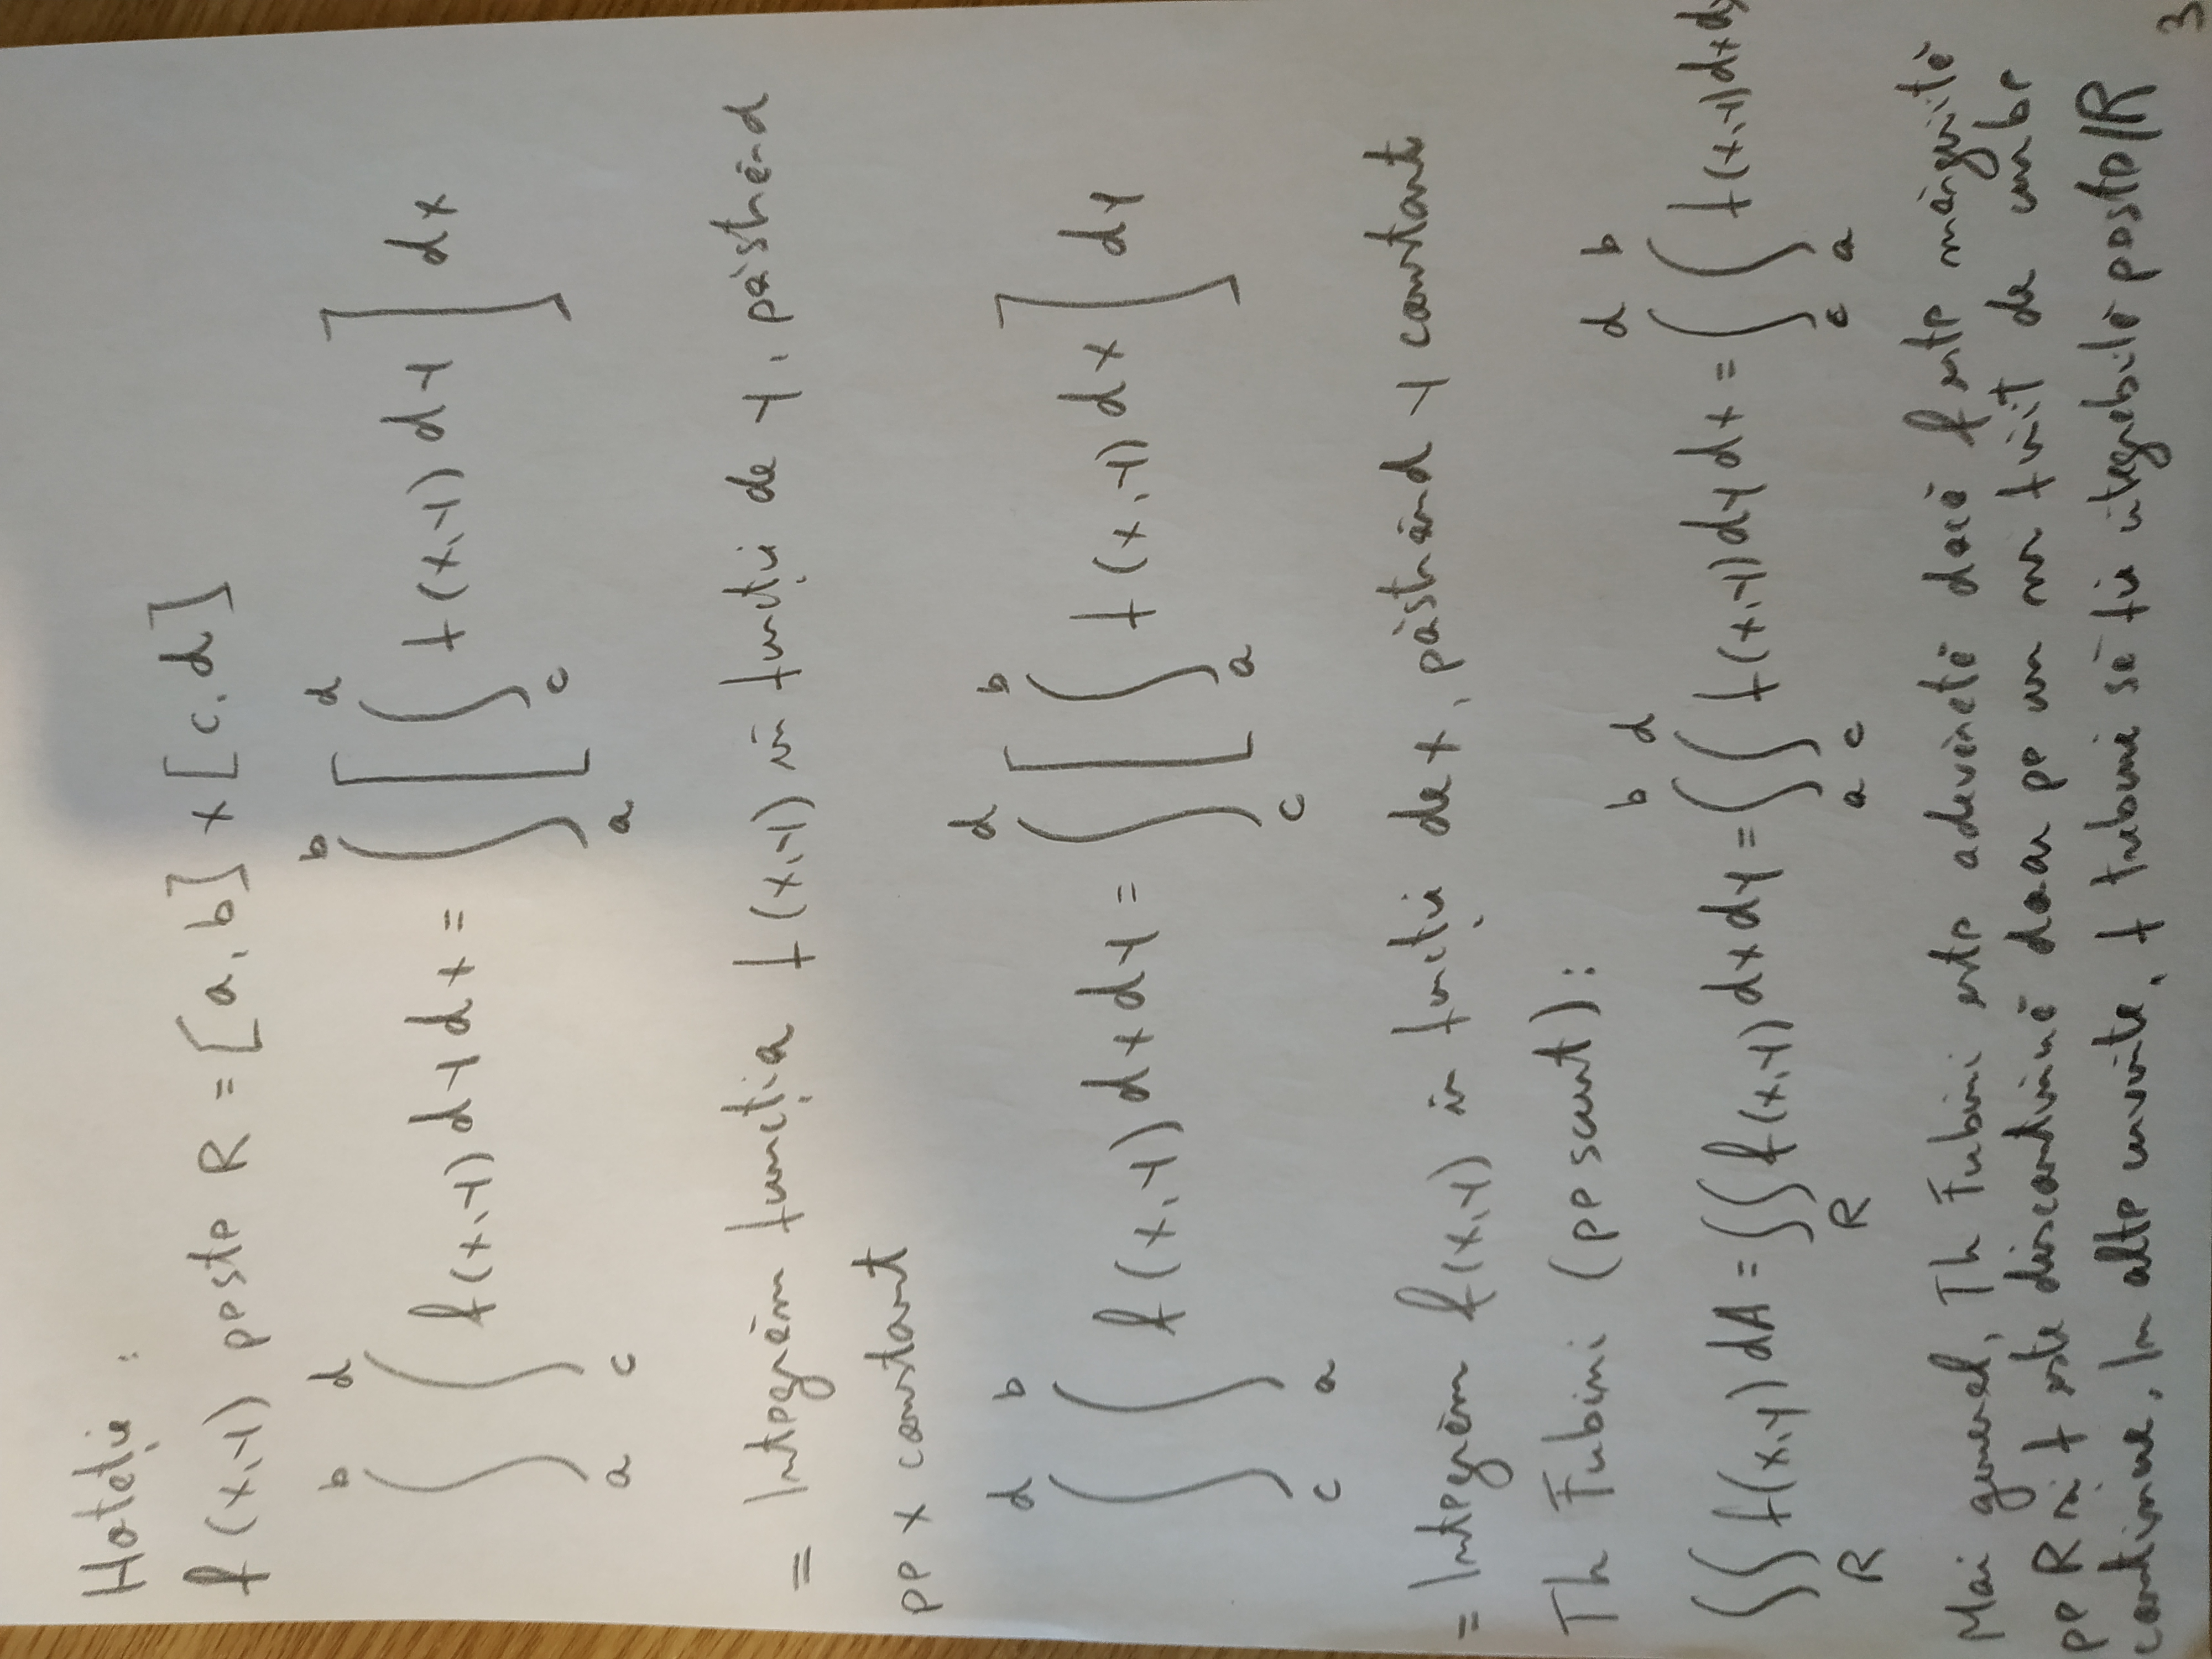 Notație :
f(x,y) peste R = [a, b] × [c, d]
∫_a^b ∫_c^d f(x,y) dy dx = ∫_a^b [ ∫_c^d f(x,y) dy ] dx
= Integrăm funcția f(x,y) în funcție de y, păstrând
pe x constant
∫_c^d ∫_a^b f(x,y) dx dy = ∫_c^d [ ∫_a^b f(x,y) dx ] dy
= Integrăm f(x,y) în funcție de x, păstrând y constant
Th Fubini (pe scurt) :
∬_R f(x,y) dA = ∬_R f(x,y) dx dy = ∫_a^b ∫_c^d f(x,y) dy dx = ∫_c^d ∫_a^b f(x,y) dx dy
Mai general, Th Fubini este adevărată dacă f este mărginită
pe R și f este discontinuă doar pe un nr finit de curbe
continue. În alte cuvinte, f trebuie să fie integrabilă peste R
3